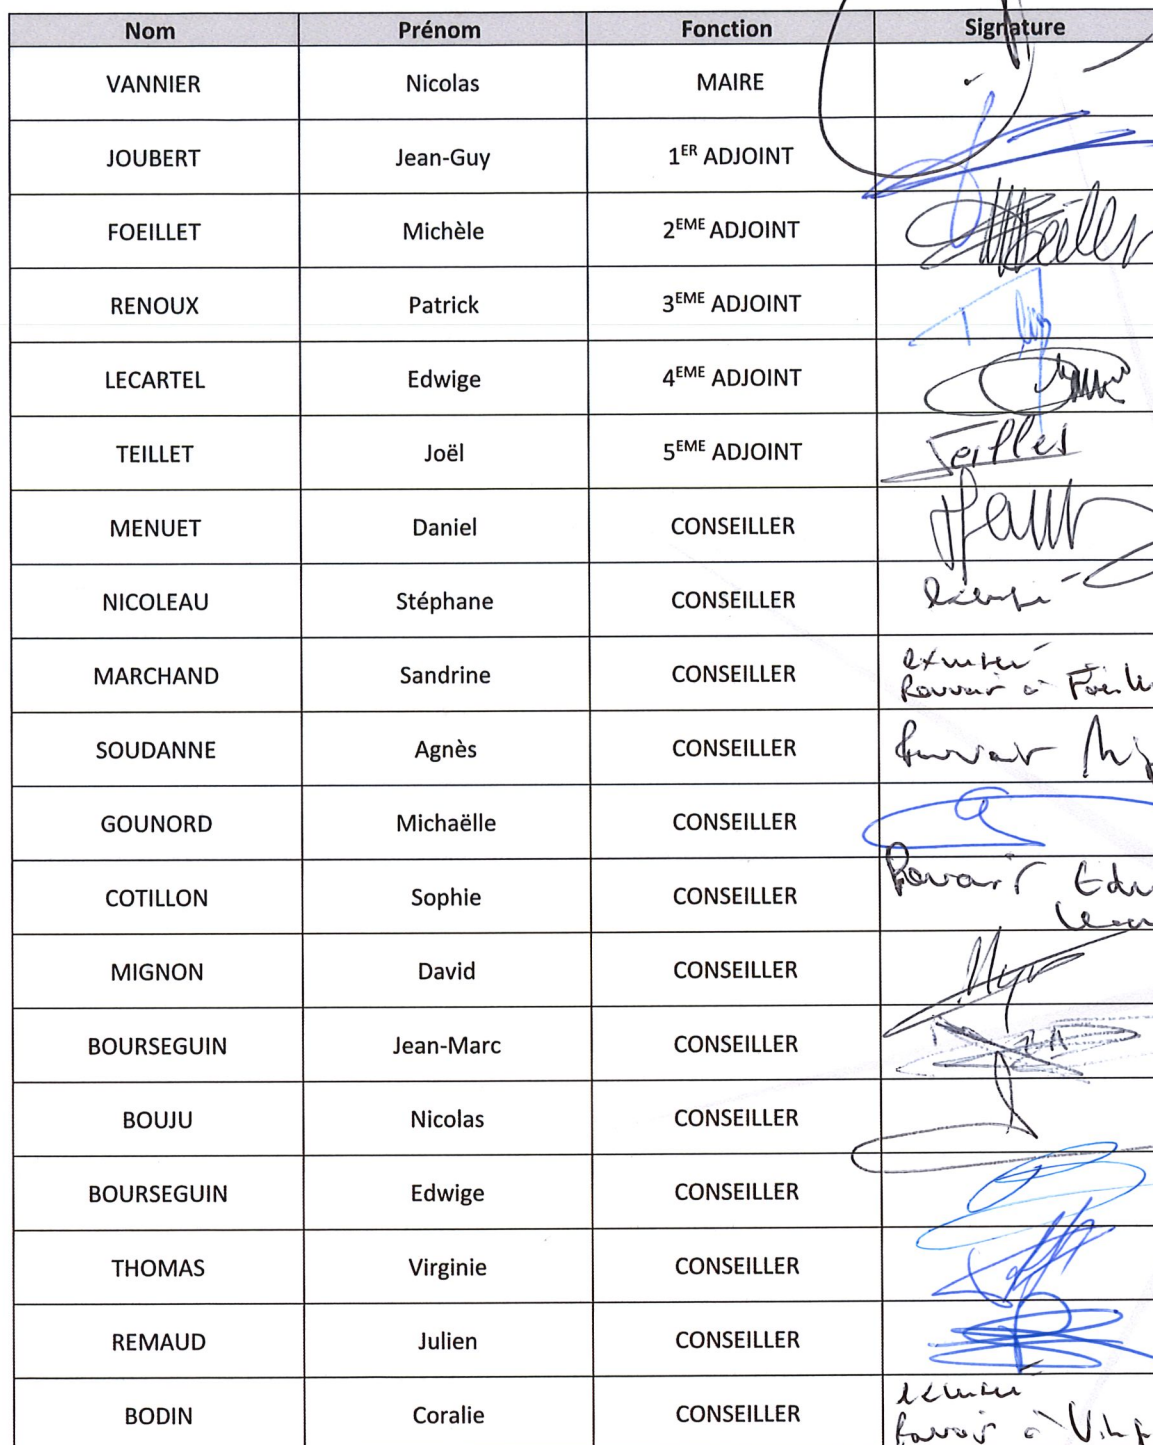 Nom Prénom Fonction Signature
VANNIER Nicolas MAIRE
JOUBERT Jean-Guy 1ER ADJOINT
FOEILLET Michèle 2EME ADJOINT
RENOUX Patrick 3EME ADJOINT
LECARTEL Edwige 4EME ADJOINT
TEILLET Joël 5EME ADJOINT
MENUET Daniel CONSEILLER
NICOLEAU Stéphane CONSEILLER
MARCHAND Sandrine CONSEILLER
Pouvoir à
SOUDANNE Agnès CONSEILLER
GOUNORD Michaëlle CONSEILLER
COTILLON Sophie CONSEILLER Pouvoir
MIGNON David CONSEILLER
BOURSEGUIN Jean-Marc CONSEILLER
BOUJU Nicolas CONSEILLER
BOURSEGUIN Edwige CONSEILLER
THOMAS Virginie CONSEILLER
REMAUD Julien CONSEILLER
BODIN Coralie CONSEILLER
Pouvoir à